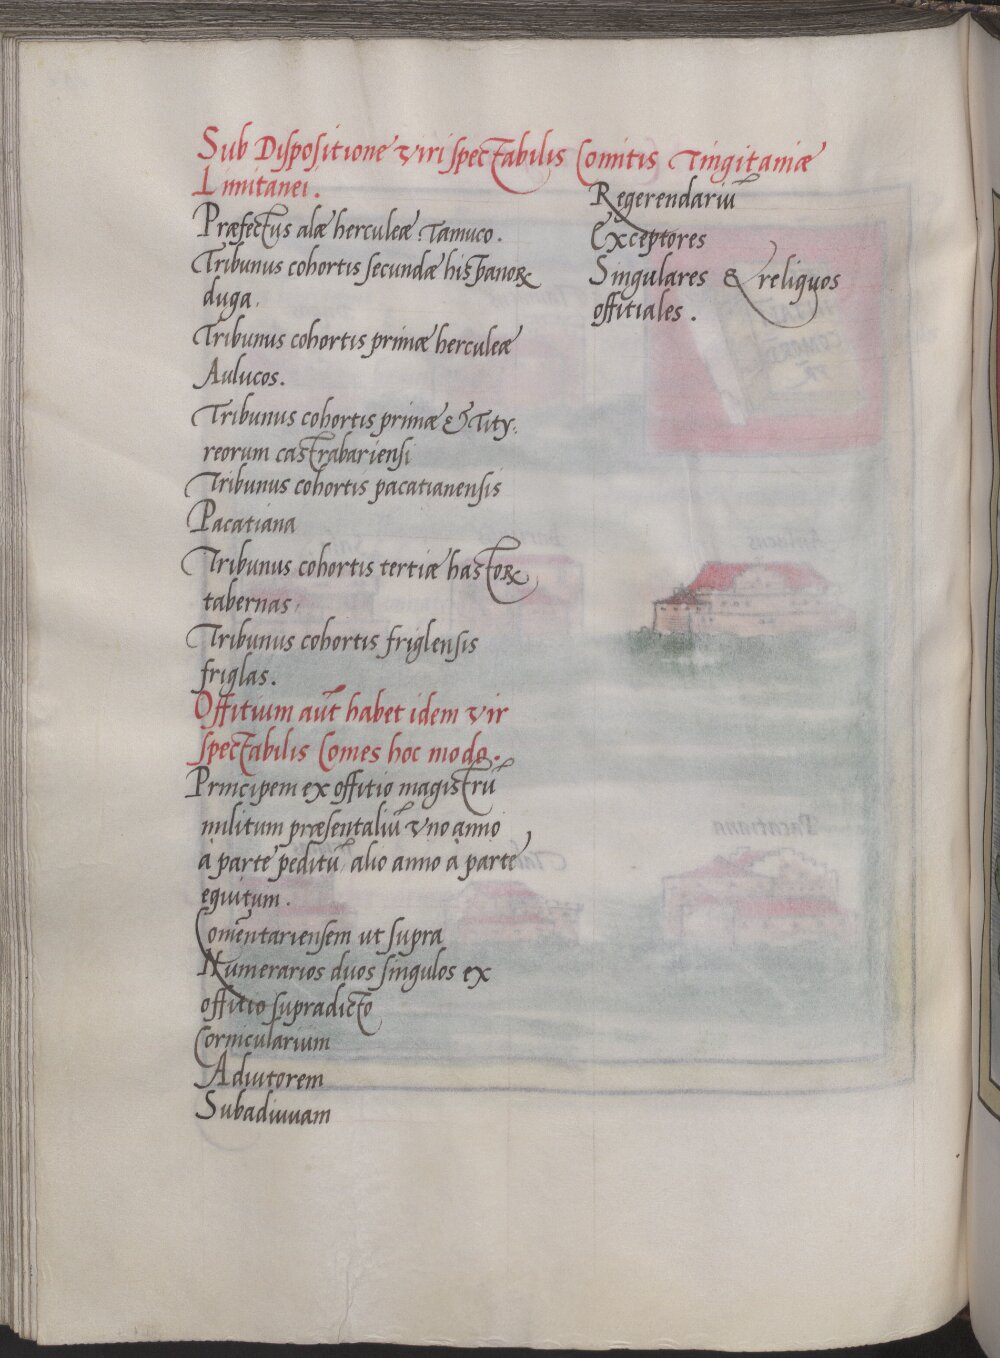 Sub Dispositione viri spectabilis Comitis Tingitaniæ
Limitanei.
Præfectus alæ herculeæ. Tamuco.
Tribunus cohortis secundæ hispanoꝝ
duga.
Tribunus cohortis primæ herculeæ
Aulucos.
Tribunus cohortis primæ & Ity-
reorum castrabariensi
Tribunus cohortis pacatianensis
Pacatiana
Tribunus cohortis tertiæ hastoꝝ
tabernas.
Tribunus cohortis friglensis
friglas.
Offitium aūt habet idem vir
spectabilis Comes hoc modo.
Principem ex offitio magistrū
militum præsentaliū vno anno
a parte peditū alio anno a parte
equitum.
Comēntariensem ut supra
Numerarios duos singulos ex
offitio supradicto
Cornicularium
Adiutorem
Subadiuuam
Regerendariū
Exceptores
Singulares & reliquos
offitiales.